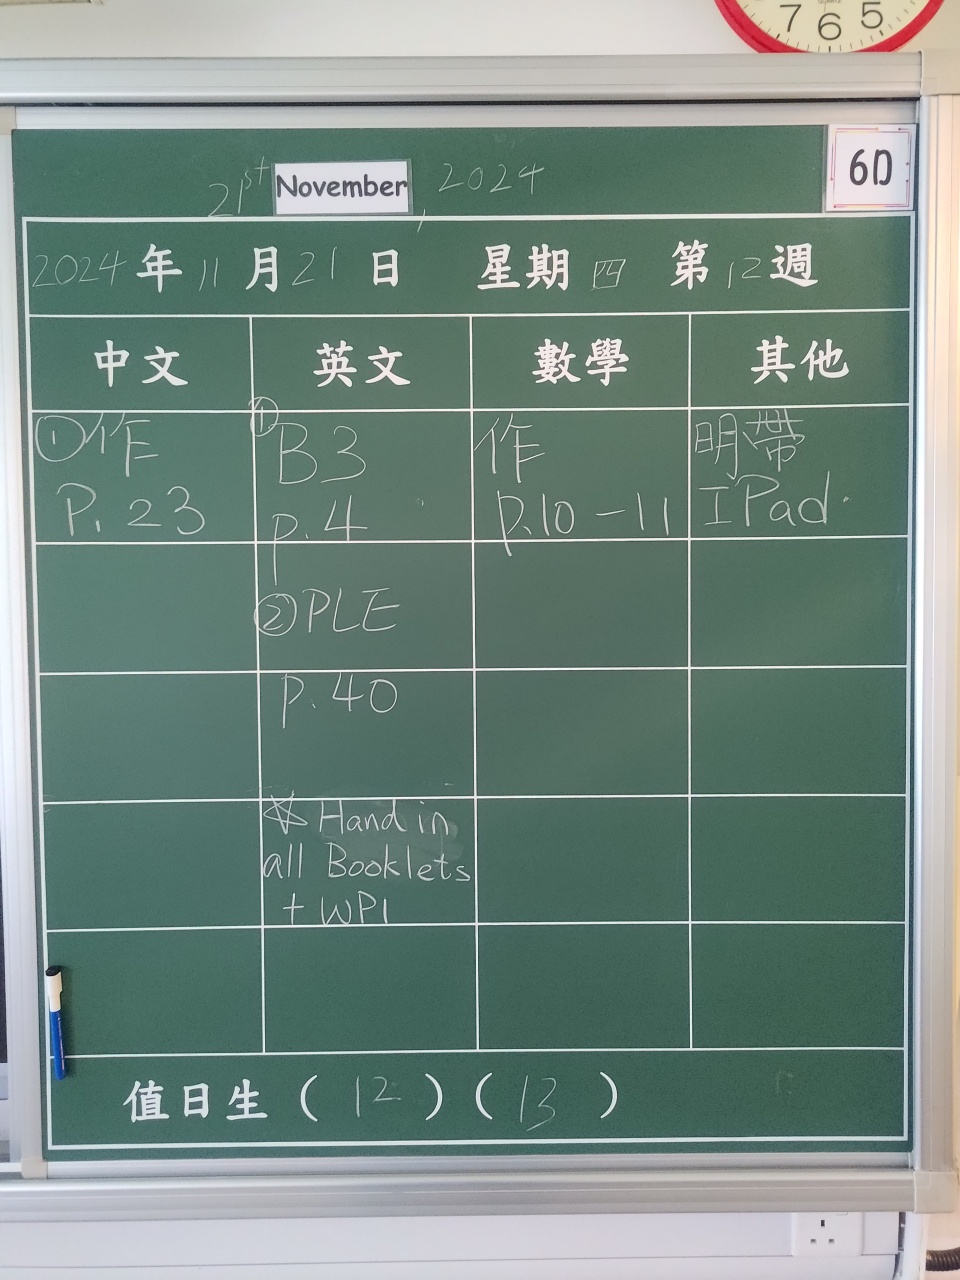 7 6 5
21st November, 2024
6D
2024年11月21日 星期四 第12週
中文 英文 數學 其他
①作
P. 23
①B3
p. 4
②PLE
p. 40
☆ Hand in
all Booklets
+ WP1
作
p.10-11
明帶
IPad.
值日生 ( 12 ) ( 13 )